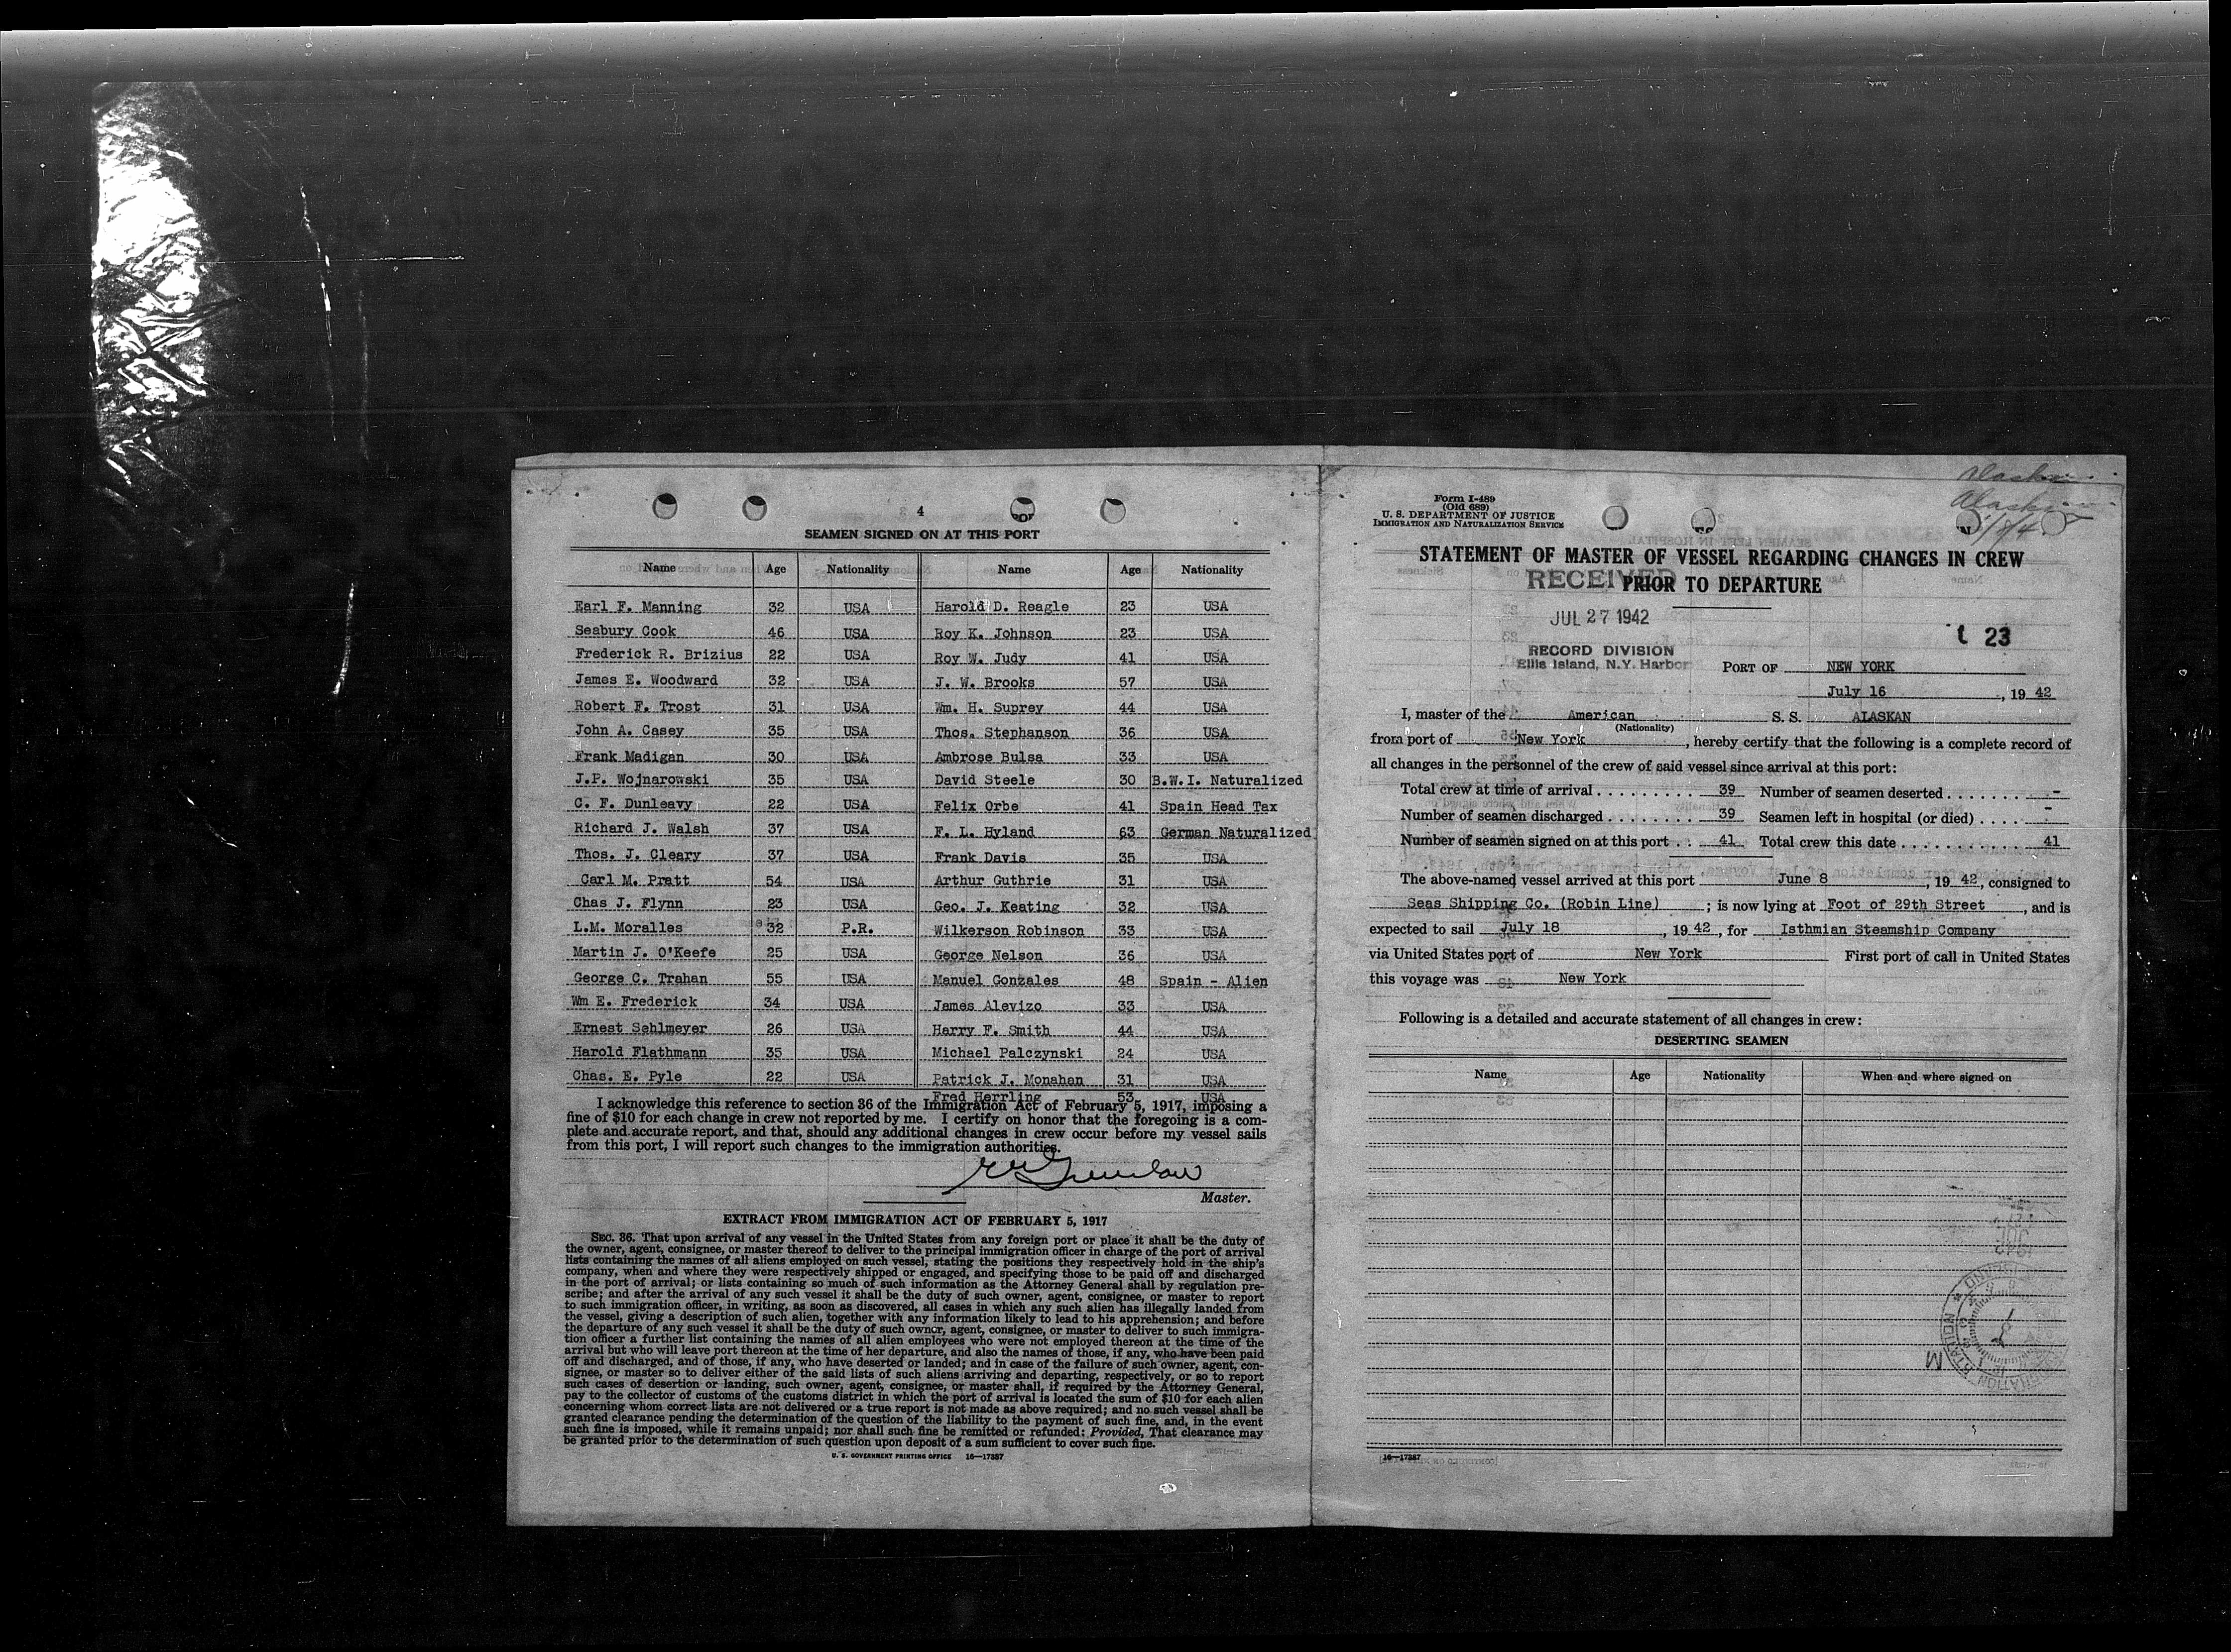 4
SEAMEN SIGNED ON AT THIS PORT
Name Age Nationality Name Age Nationality
Earl F. Manning 32 USA Harold D. Reagle 23 USA
Seabury Cook 46 USA Roy K. Johnson 23 USA
Frederick R. Brizius 22 USA Roy W. Judy 41 USA
James E. Woodward 32 USA J. W. Brooks 57 USA
Robert F. Trost 31 USA Wm. H. Suprey 44 USA
John A. Casey 35 USA Thos. Stephanson 36 USA
Frank Madigan 30 USA Ambrose Bulsa 33 USA
J.P. Wojnarowski 35 USA David Steele 30 B.W.I. Naturalized
C. F. Dunleavy 22 USA Felix Orbe 41 Spain Head Tax
Richard J. Walsh 37 USA F. L. Hyland 63 German Naturalized
Thos. J. Cleary 37 USA Frank Davis 35 USA
Carl M. Pratt 54 USA Arthur Guthrie 31 USA
Chas J. Flynn 23 USA Geo. J. Keating 32 USA
L.M. Moralles 32 P.R. Wilkerson Robinson 33 USA
Martin J. O'Keefe 25 USA George Nelson 36 USA
George C. Trahan 55 USA Manuel Gonzales 48 Spain - Alien
Wm E. Frederick 34 USA James Alevizo 33 USA
Ernest Sehlmeyer 26 USA Harry F. Smith 44 USA
Harold Flathmann 35 USA Michael Palczynski 24 USA
Chas. E. Pyle 22 USA Patrick J. Monahan 31 USA
Fred Herrling 53 USA
I acknowledge this reference to section 36 of the Immigration Act of February 5, 1917, imposing a
fine of $10 for each change in crew not reported by me. I certify on honor that the foregoing is a com-
plete and accurate report, and that, should any additional changes in crew occur before my vessel sails
from this port, I will report such changes to the immigration authorities.
Master.
EXTRACT FROM IMMIGRATION ACT OF FEBRUARY 5, 1917
SEC. 36. That upon arrival of any vessel in the United States from any foreign port or place it shall be the duty of
the owner, agent, consignee, or master thereof to deliver to the principal immigration officer in charge of the port of arrival
lists containing the names of all aliens employed on such vessel, stating the positions they respectively hold in the ship's
company, when and where they were respectively shipped or engaged, and specifying those to be paid off and discharged
in the port of arrival; or lists containing so much of such information as the Attorney General shall by regulation pre-
scribe; and after the arrival of any such vessel it shall be the duty of such owner, agent, consignee, or master to report
to such immigration officer, in writing, as soon as discovered, all cases in which any such alien has illegally landed from
the vessel, giving a description of such alien, together with any information likely to lead to his apprehension; and before
the departure of any such vessel it shall be the duty of such owner, agent, consignee, or master to deliver to such immigra-
tion officer a further list containing the names of all alien employees who were not employed thereon at the time of the
arrival but who will leave port thereon at the time of her departure, and also the names of those, if any, who have been paid
off and discharged, and of those, if any, who have deserted or landed; and in case of the failure of such owner, agent, con-
signee, or master so to deliver either of the said lists of such aliens arriving and departing, respectively, or so to report
such cases of desertion or landing, such owner, agent, consignee, or master shall, if required by the Attorney General,
pay to the collector of customs of the customs district in which the port of arrival is located the sum of $10 for each alien
concerning whom correct lists are not delivered or a true report is not made as above required; and no such vessel shall be
granted clearance pending the determination of the question of the liability to the payment of such fine, and, in the event
such fine is imposed, while it remains unpaid; nor shall such fine be remitted or refunded: Provided, That clearance may
be granted prior to the determination of such question upon deposit of a sum sufficient to cover such fine.
U. S. GOVERNMENT PRINTING OFFICE 16—17387
Alaskan
Alaskan
Form I-489
(Old 689)
U. S. DEPARTMENT OF JUSTICE
IMMIGRATION AND NATURALIZATION SERVICE
STATEMENT OF MASTER OF VESSEL REGARDING CHANGES IN CREW
PRIOR TO DEPARTURE
RECEIVED
JUL 27 1942
RECORD DIVISION
Ellis Island, N.Y. Harbor
t 23
PORT OF NEW YORK
July 16, 19 42
I, master of the American S. S. ALASKAN
(Nationality)
from port of New York, hereby certify that the following is a complete record of
all changes in the personnel of the crew of said vessel since arrival at this port:
Total crew at time of arrival . . . . . . . . . 39 Number of seamen deserted . . . . . . . . -
Number of seamen discharged . . . . . . . . 39 Seamen left in hospital (or died) . . . . -
Number of seamen signed on at this port . . 41 Total crew this date . . . . . . . . . . . 41
The above-named vessel arrived at this port June 8, 19 42, consigned to
Seas Shipping Co. (Robin Line) ; is now lying at Foot of 29th Street, and is
expected to sail July 18, 19 42, for Isthmian Steamship Company
via United States port of New York First port of call in United States
this voyage was New York
Following is a detailed and accurate statement of all changes in crew:
DESERTING SEAMEN
Name Age Nationality When and where signed on
16—17387